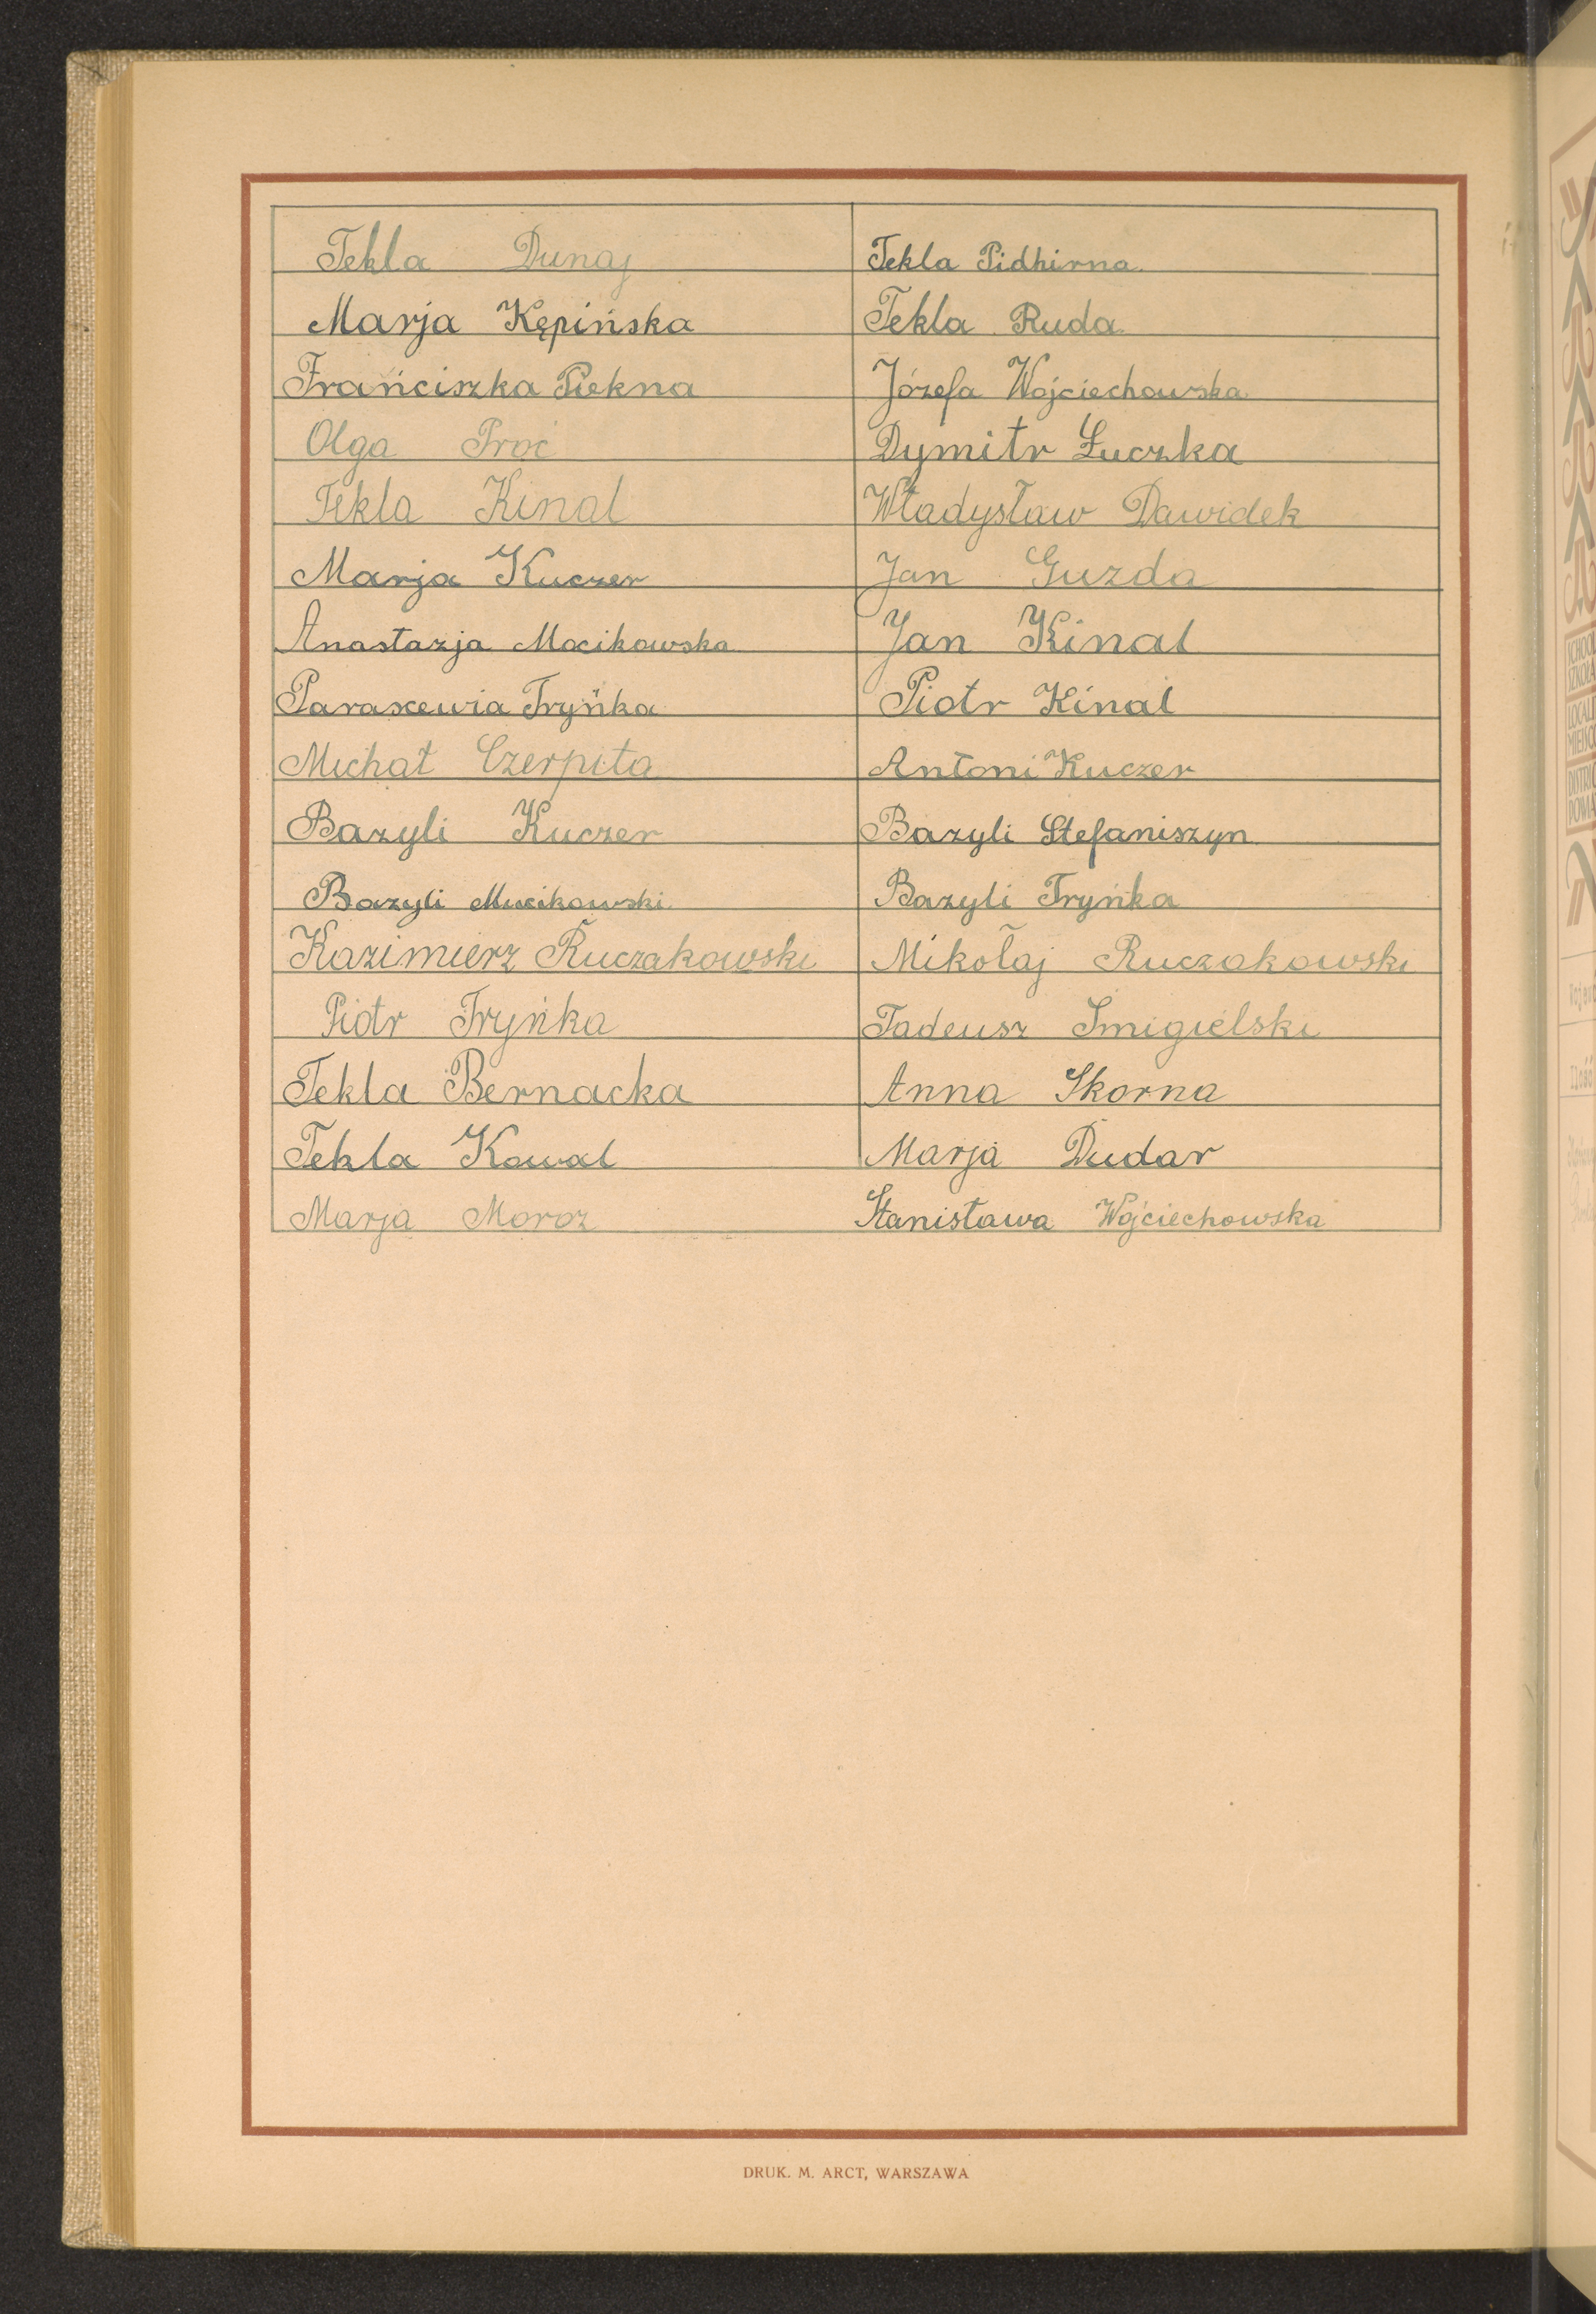 Tekla Dunaj Tekla Pidhirna.
Marja Kępińska Tekla Ruda.
Frańciszka Piekna Józefa Wojciechowska.
Olga Proć Dymitr Łuczka
Tekla Kinal Władysław Dawidek
Marja Kuczer Jan Guzda
Anastazja Mocikowska Jan Kinal
Paraxewia Tryńka Piotr Kinal
Michał Czerpita Antoni Kuczer
Bazyli Kuczer Bazyli Stefaniszyn.
Bazyli Bazyli Tryńka
Kazimierz Ruczakowski Mikołaj Ruczakowski
Piotr Tryńka Tadeusz Smigielski
Tekla Bernacka Anna Skorna
Tekla Kowal Marja Dudar
Marja Moroz Stanisława Wojciechowska
DRUK. M. ARCT, WARSZAWA